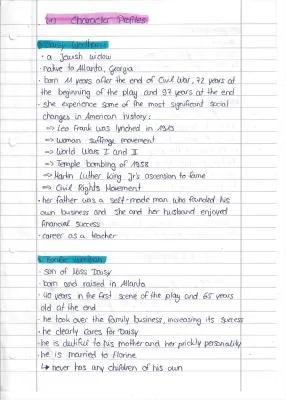 Character Profiles
Daisy Werthan:
· a Jewish widow
· native to Atlanta, Georgia
· born 11 years after the end of Civil War, 72 years at
the beginning of the play and 97 years at the end
· she experience some of the most significant social
changes in American history:
⇒ Leo Frank was lynched in 1915
⇒ woman suffrage movement
⇒ World Wars I and II
⇒ Temple bombing of 1958
⇒ Martin Luther King Jr's ascension to fame
⇒ Civil Rights Movement
· her father was a self-made man who founded his
own business and she and her husband enjoyed
financial success
· career as a teacher
Boolie Werthan
· son of Miss Daisy
· born and raised in Atlanta
· 40 years in the first scene of the play and 65 years
old at the end
· he took over the family business, increasing its success
· he clearly cares for Daisy
· he is dutiful to his mother and her prickly personality
· he is married to Florine
↳ never has any children of his own